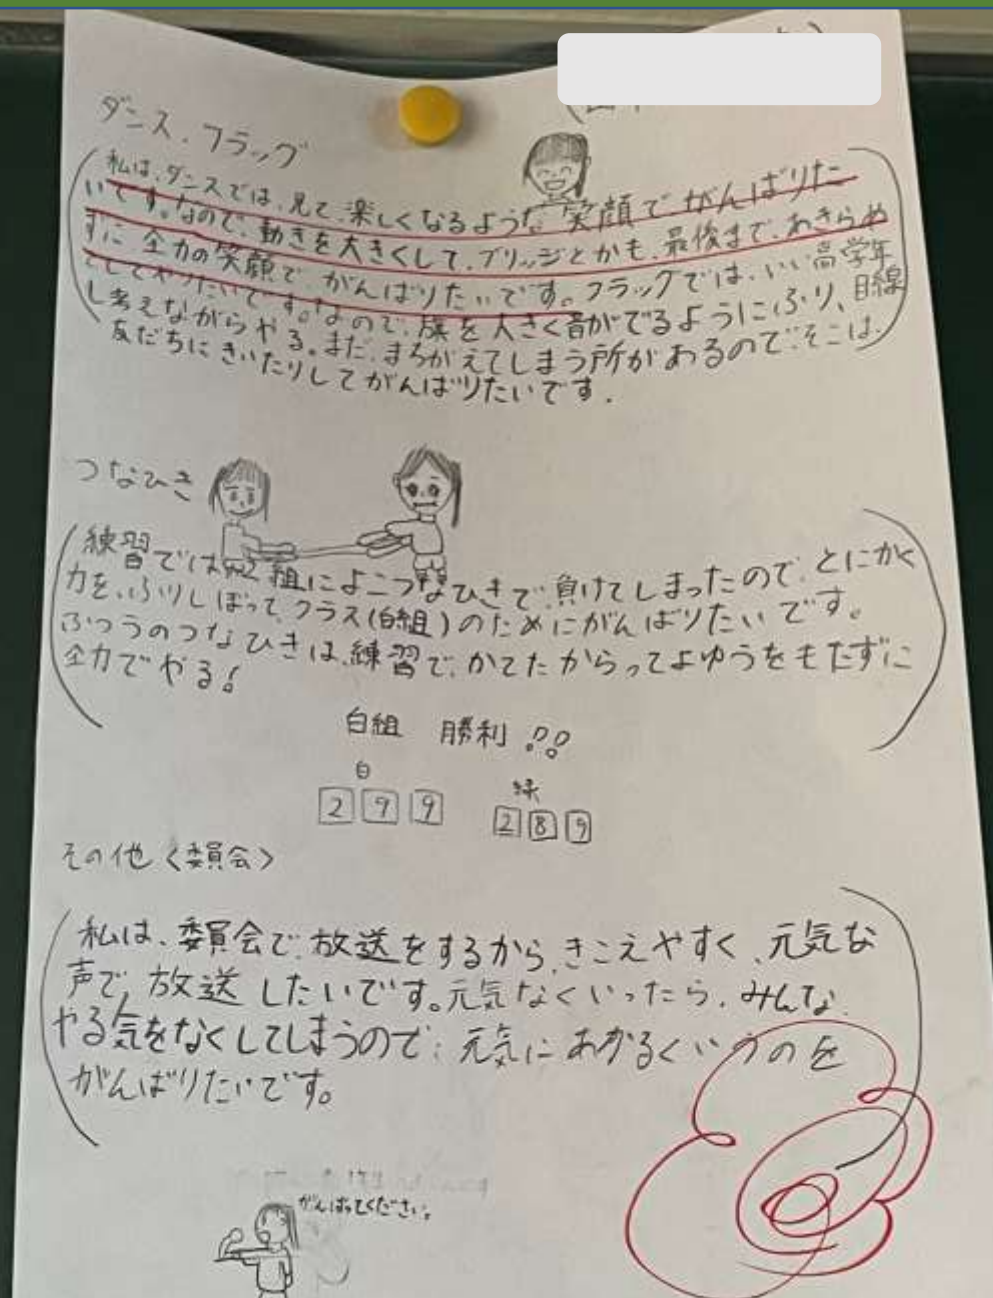 ダンス.フラッグ
私は、ダンスでは、見て楽しくなるような笑顔でがんばりた
いです。なので、動きを大きくして、ブリッジとかも、最後まで、あきらめ
ずに全力の笑顔で、がんばりたいです。フラッグでは、いい高学年
としてやりたいです。なので、旗を大きく音がでるようにふり、目線
し考えながらやる。まだ、まちがえてしまう所があるので、そこは、
友だちにきいたりしてがんばりたいです.
つなひき
練習では、2組によこつなひきで、負けてしまったので、とにかく
力を、ふりしぼって、クラス(白組)のためにがんばりたいです。
ふつうのつなひきは、練習で、かてたからってよゆうをもたずに
全力でやる!
白組 勝利!!
白
299
緑
289
その他〈委員会〉
私は、委員会で、放送をするから、きこえやすく、元気な
声で、放送したいです。元気なくいったら、みんな、
やる気をなくしてしまうので、元気にあかるくいうのを
がんばりたいです。
がんばってください。